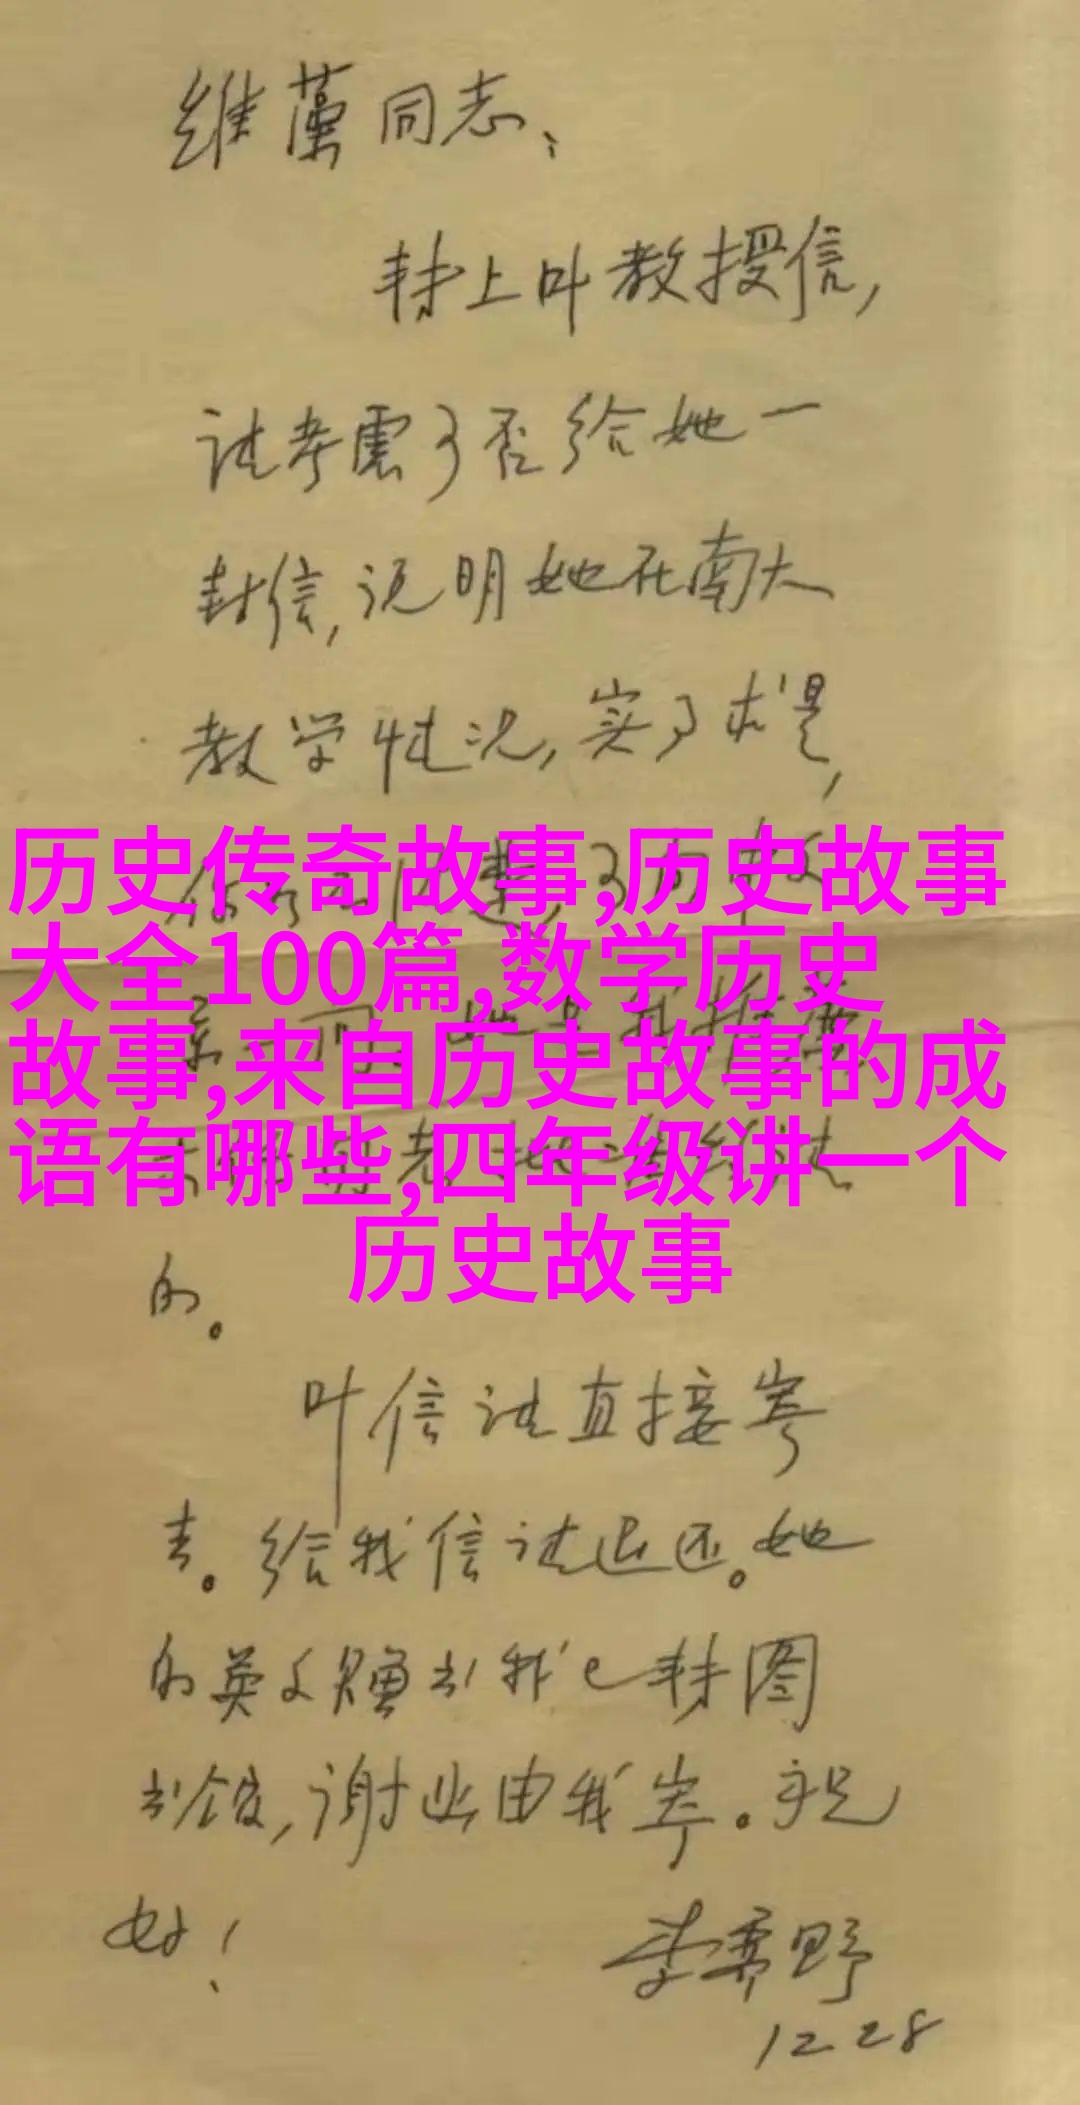 维藻同志:
转上叶教授信,
请考虑可否给她一
封信,说明她在南大
教学情况,实事求是,
历史传奇故事,历史故事
大全100篇,数学历史
故事,来自历史故事的成
语有哪些,四年级讲一个
历史故事
的。
叶信请直接寄
去。给我信请退还。她
的英文赠书我已转图
书馆,谢业由我寄。祝
好!
李霁野
12 28